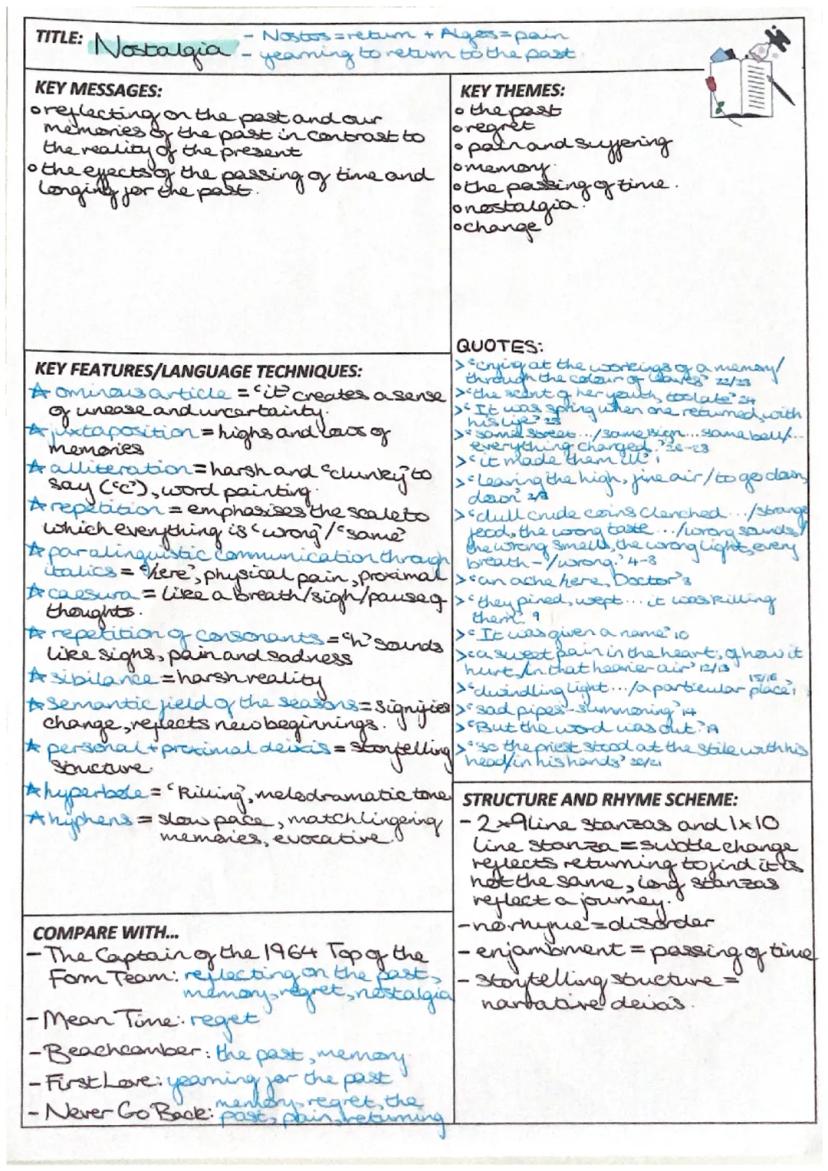 TITLE: Nostalgia - Nostos=return + Algos=pain
- yearning to return to the past.
KEY MESSAGES:
o reflecting on the past and our
memories of the past in contrast to
the reality of the present
o the effects of the passing of time and
longing for the past.
KEY THEMES:
o the past
o regret
o pain and suffering
o memory
o the passing of time.
o nostalgia.
o change
KEY FEATURES/LANGUAGE TECHNIQUES:
☆ ominous article = 'it' creates a sense
of unease and uncertainty.
☆ juxtaposition = highs and lows of
memories
☆ alliteration = harsh and 'clunky' to
say ('c'), word painting.
☆ repetition = emphasises the scale to
which everything is 'wrong'/'same'
☆ paralinguistic communication through
italics = 'here', physical pain, proximal
☆ caesura = like a breath/sigh/pause of
thoughts.
☆ repetition of consonants = 'h' sounds
like sighs, pain and sadness
☆ sibilance = harsh reality
☆ semantic field of the seasons = signifies
change, reflects new beginnings.
☆ personal + proximal deixis = storytelling
structure
☆ hyperbole = 'killing', melodramatic tone
☆ hyphens = slow pace, match lingering
memories, evocative
QUOTES:
> 'crying at the workings of a memory/
through the colour of leaves' 22/23
> 'the scent of her youth, too late' 24
> 'It was spring when one returned, with
his life' 25
> 'same street.../same sign... same bell/...
everything changed.' 26-28
> 'it made them ill' 1
> 'leaving the high, fine air/to go down,
down' 2/3
> 'dull crude coins clenched.../strange
food, the wrong taste.../wrong sounds/
the wrong smells, the wrong light, every
breath-/wrong.' 4-8
> 'an ache here, Doctor' 8
> 'they pined, wept... it was killing
them.' 9
> 'It was given a name' 10
> 'a sweet pain in the heart, of how it
hurt,/in that heavier air' 12/13
> 'dwindling light.../a particular place' 15/16
> 'sad pipes - summoning' 14
> 'But the word was out.' 19
> 'so the priest stood at the stile with his
head/in his hands' 20/21
STRUCTURE AND RHYME SCHEME:
- 2×9 line stanzas and 1×10
line stanza = subtle change
reflects returning to find it is
not the same, long stanzas
reflect a journey.
- no rhyme = disorder
- enjambment = passing of time
- storytelling structure =
narrative deixis.
COMPARE WITH...
- The Captain of the 1964 Top of the
Form Team: reflecting on the past,
memory, regret, nostalgia
- Mean Time: reget
- Beachcomber: the past, memory
- First Love: yearning for the past
- Never Go Back: memory, regret, the
past, pain, returning